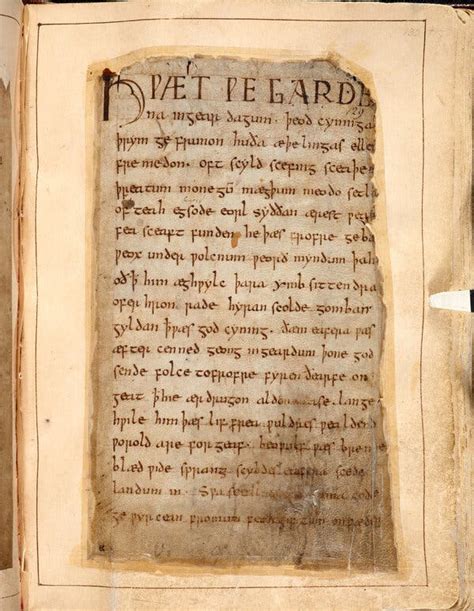 HǷÆT ǷE GARDE
na ingear dagum. þeod cyninga
þrym ge frunon huða æþelingas elle
fremedon. oft scyld scefing sceaþe
þreatum monegū mægþum meodo setla
of teah egsode eorl syððan ærest ƿear
fea sceaft funden he þæs frofre geba
ƿeox under ƿolcnum ƿeorð myndum þah
oð þ him æghƿylc þara ymb sittendra
ofer hron rade hyran scolde gomban
gyldan þ ƿæs god cyning. ðæm eafera ƿæs
æfter cenned geong ingeardum þone god
sende folce tofrofre fyren ðearfe on
geat þ hie ær drugon aldor ase. lange
hƿile him þæs lif frea ƿuldres ƿealdend
ƿorold are forgeaf. beoƿulf ƿæs breme
blæd ƿide sprang scyldes eafera scede
landum in. Sƿa uma gode
ge ƿyrcean fromum feoh giftum